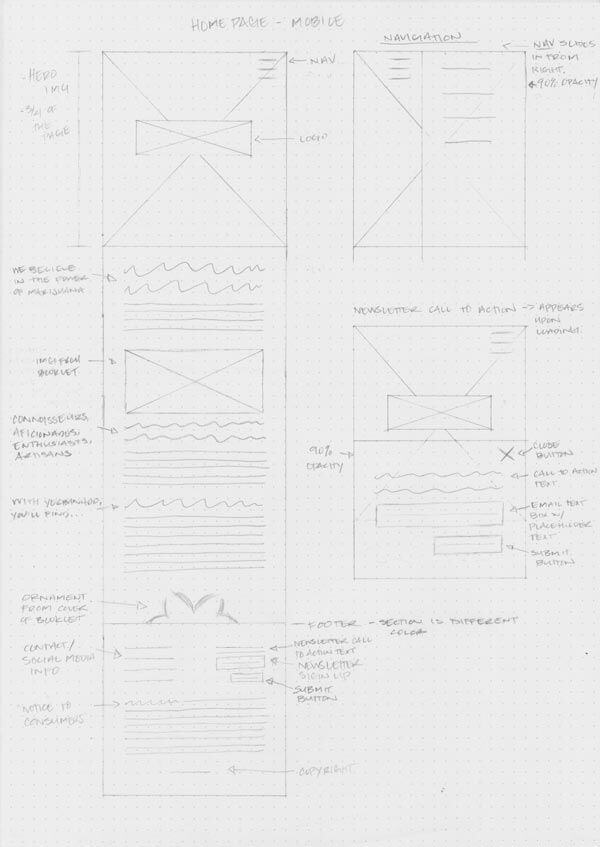 HOMEPAGE - MOBILE
- HERO
IMG
- 3/4 OF
THE
PAGE
NAV
LOGO
WE BELIEVE
IN THE POWER
OF MARIJUANA
IMG FROM
BOOKLET
CONNOISSEURS,
AFICIONADOS,
ENTHUSIASTS,
ARTISANS
WITH
YOU'LL FIND...
ORNAMENT
FROM COVER
OF BOOKLET
FOOTER - SECTION IS DIFFERENT
COLOR
CONTACT/
SOCIAL MEDIA
INFO
NEWSLETTER CALL
TO ACTION TEXT
NEWSLETTER
SIGN UP
SUBMIT
BUTTON
"NOTICE TO
CONSUMERS"
COPYRIGHT
NAVIGATION
NAV SLIDES
IN FROM
RIGHT.
90% OPACITY
NEWSLETTER CALL TO ACTION -> APPEARS
UPON
LOADING.
90%
OPACITY
CLOSE
BUTTON
CALL TO ACTION
TEXT
EMAIL TEXT
BOX W/
PLACEHOLDER
TEXT
SUBMIT
BUTTON